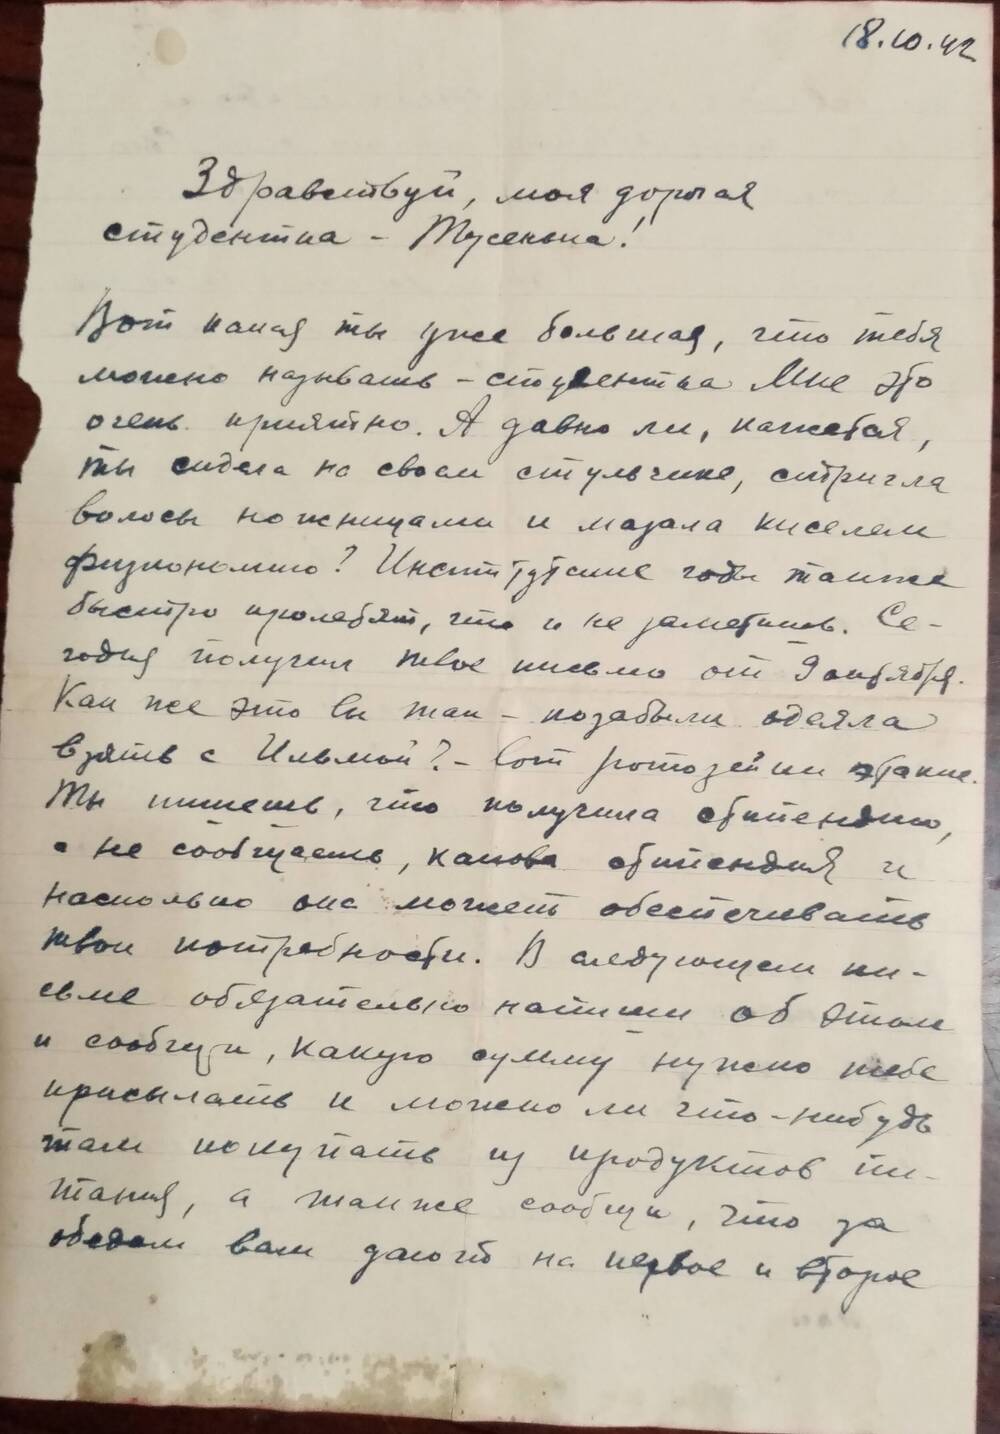 18.10.42
Здравствуй, моя дорогая
студентка - Тусенька!
Вот какая ты уже большая, что тебя
можно называть - студентка Мне это
очень приятно. А давно ли, кажется,
ты сидела на своем стульчике, стригла
волосы ножницами и мазала киселем
физиономию? Институтские годы также
быстро пролетят, что и не заметишь. Се-
годня получил твое письмо от 9 октября.
Как же это вы так - позабыли одеяла
взять с Ильмой? - Вот ротозейки этакие.
Ты пишешь, что получила стипендию,
а не сообщаешь, какова стипендия и
насколько она может обеспечивать
твои потребности. В следующем пи-
сьме обязательно напиши об этом
и сообщи, какую сумму нужно тебе
присылать и можно ли что-нибудь
там покупать из продуктов пи-
тания, а также сообщи, что за
обедом вам дают на первое и второе